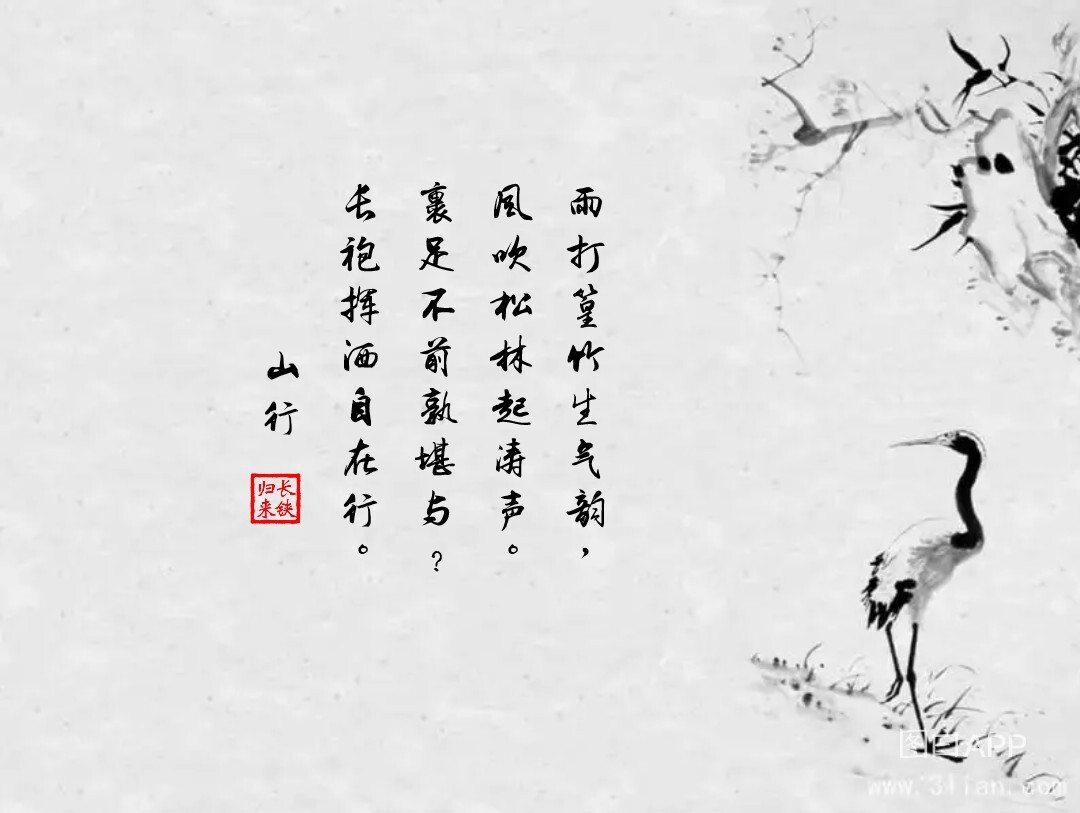 雨打篁竹生气韵，
风吹松林起涛声。
裹足不前孰堪与？
长袍挥洒自在行。
山行
长铗
归来
图曰APP
www.3lian.com